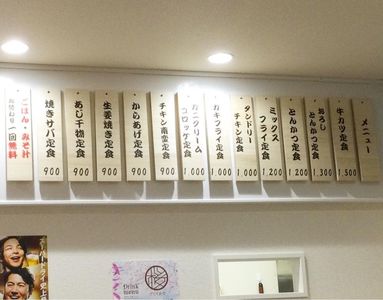 メニュー
牛カツ定食 1,500
おろしとんかつ定食 1,300
とんかつ定食 1,200
ミックスフライ定食 1,200
タンドリーチキン定食 1,000
カキフライ定食 1,000
カニクリームコロッケ定食 1,000
チキン南蛮定食 900
からあげ定食 900
生姜焼き定食 900
あじ干物定食 900
焼きサバ定食 900
ごはん・みそ汁
お替わり一回無料
Drink menu